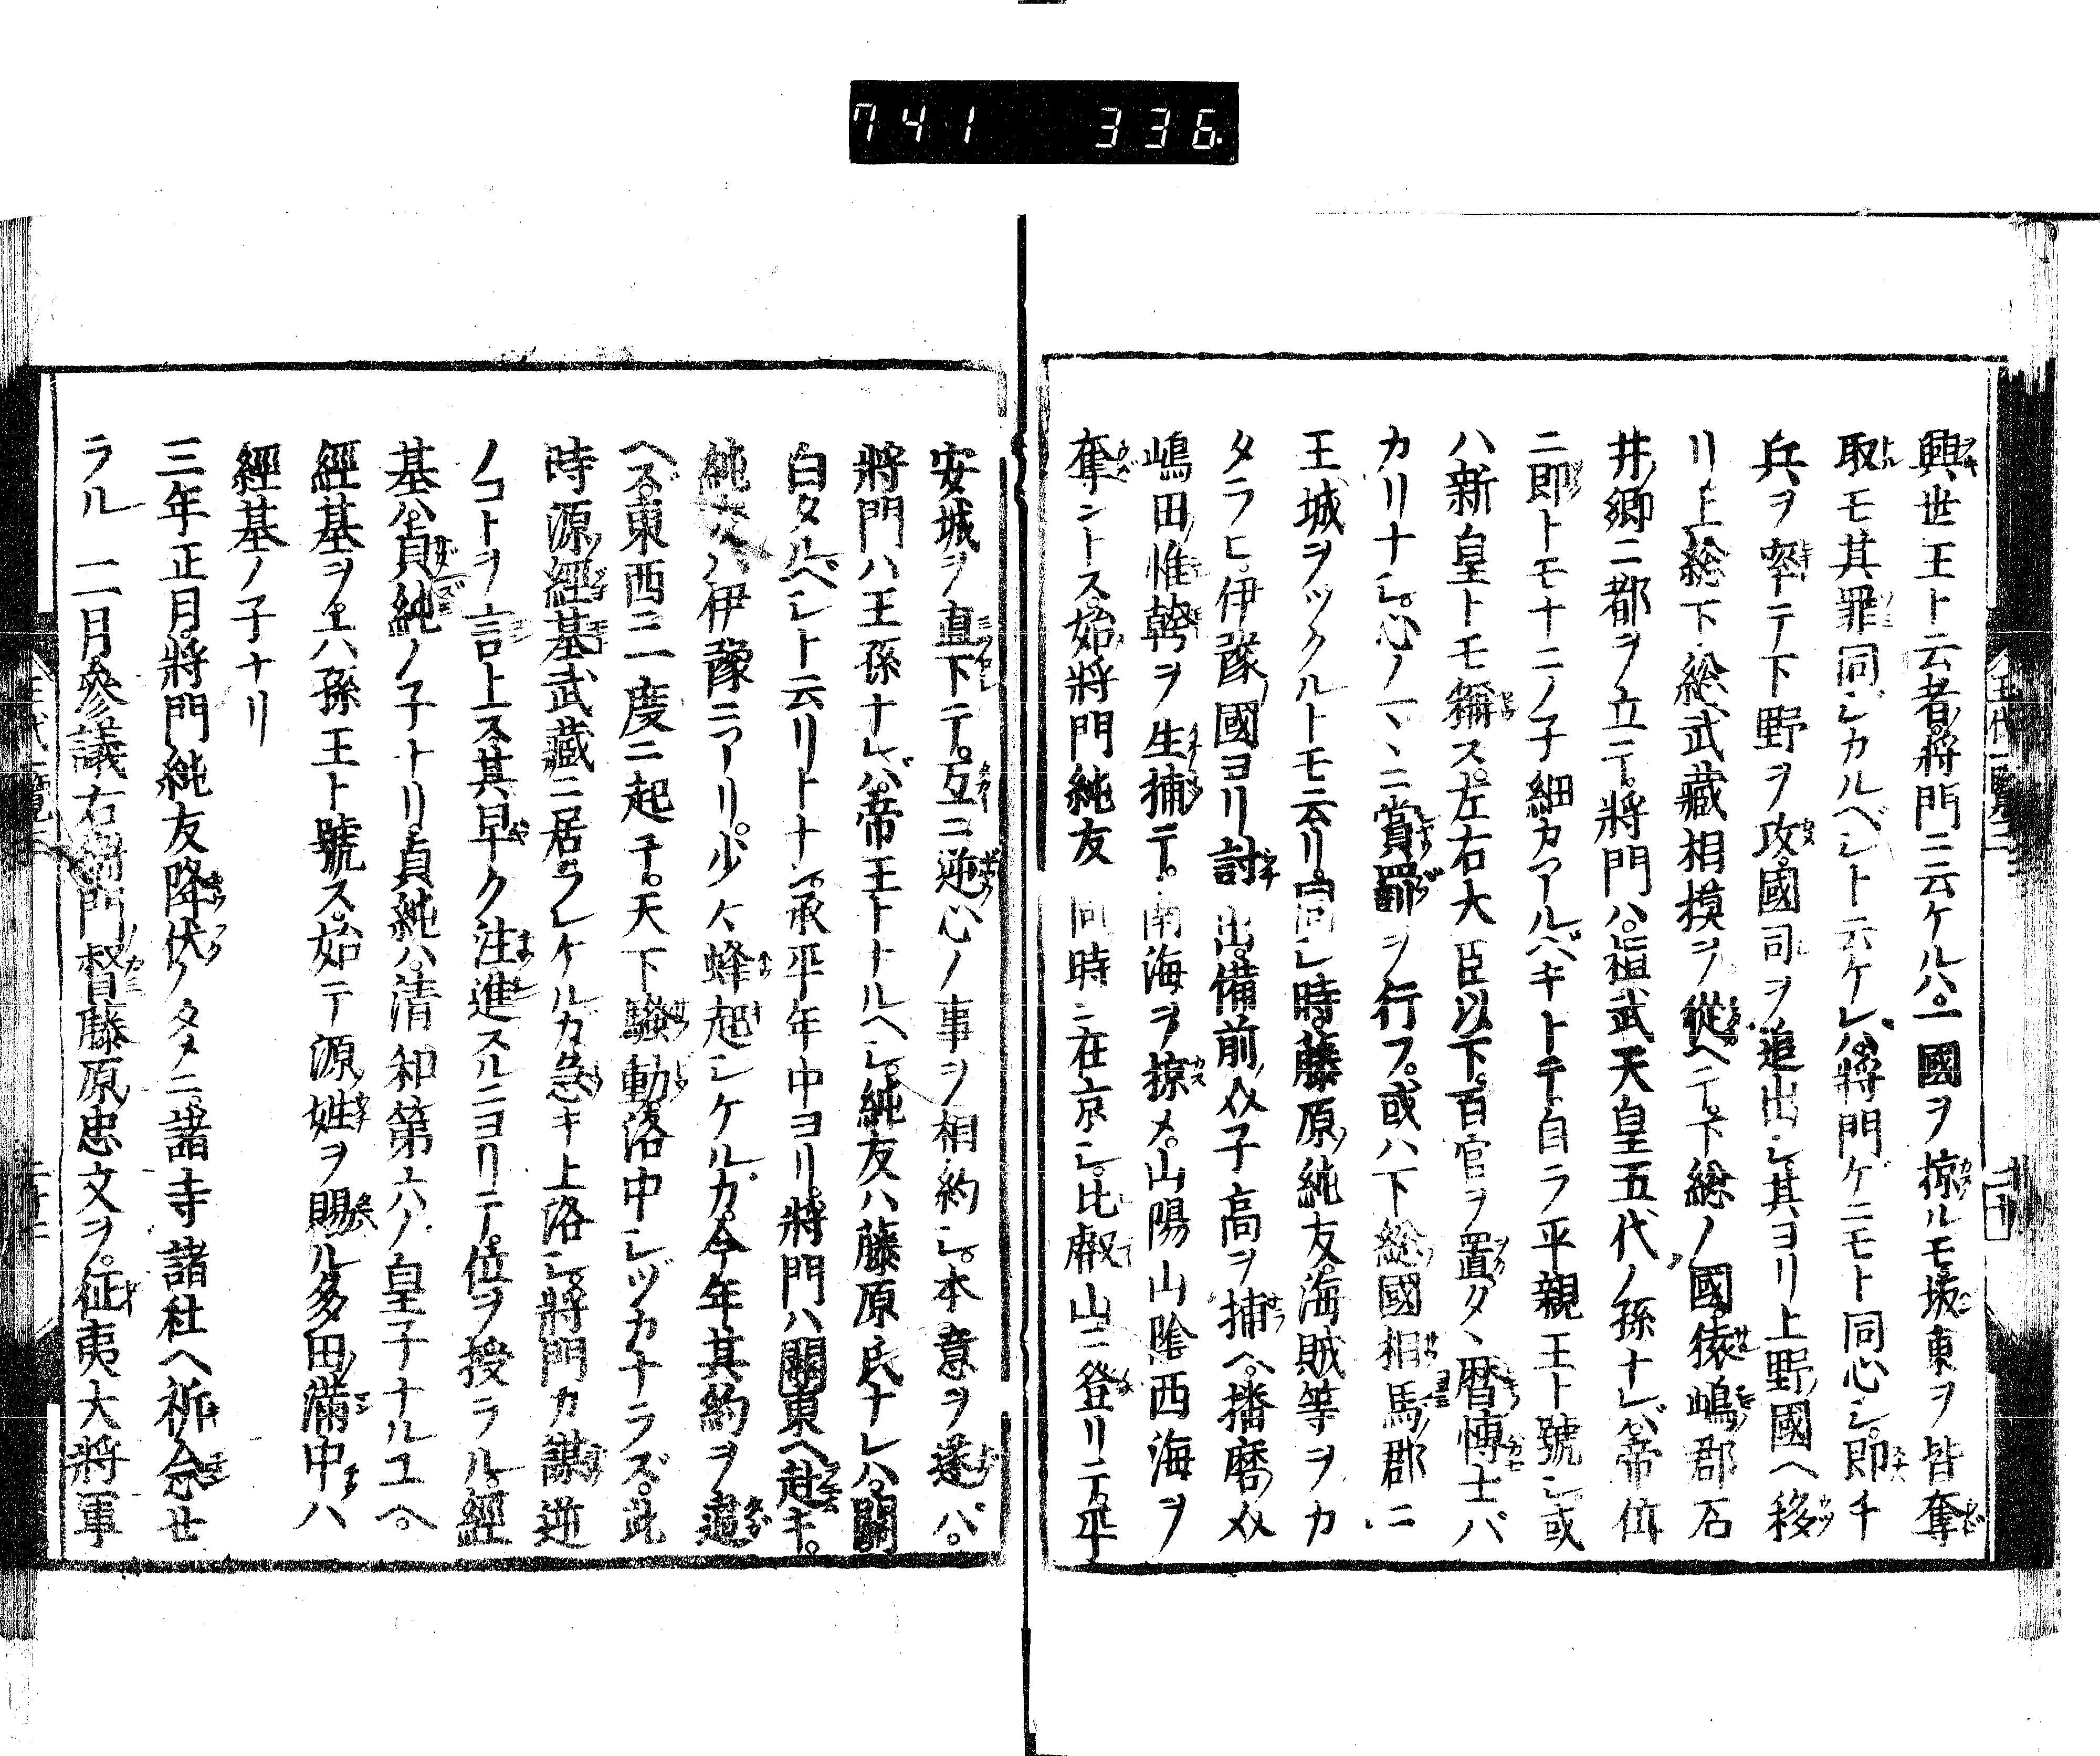 741 336.
興世王ト云者。將門ニ云ケルハ。一國ヲ掠ルモ坂東ヲ皆奪
取モ其罪同シカルベシト云ケレバ。將門ゲニモト同心シ。即チ
兵ヲ率テ下野ヲ攻。國司ヲ追出シ其ヨリ上野國ヘ移
リ上総下総武藏相摸ヲ從ヘテ。下総ノ國。猿嶋郡石
井ノ郷ニ都ヲ立テ。將門ハ。桓武天皇五代ノ孫ナレバ。帝位
ニ即トモナニノ子細カアルベキトテ。自ラ平親王ト號シ。或
ハ新皇トモ稱ス。左右大臣以下。百官ヲ置タヽ暦博士バ
カリナシ。心ノマヽニ賞罰ヲ行フ。或ハ下総國相馬郡ニ
王城ヲツクルトモ云リ。同シ時。藤原純友。海賊等ヲカ
タラヒ。伊豫國ヨリ討出。備前ノ㕝子高ヲ捕ヘ。播磨ノ㕝
嶋田惟幹ヲ生捕テ。南海ヲ掠メ。山陽山陰西海ヲ
奪ントス。始將門純友 同時ニ在京シ。比叡山ニ登リテ。平
安城ヲ直下テ。互ニ逆心ノ事ヲ相約シ。本意ヲ遂バ。
將門ハ王孫ナレバ。帝王トナルヘシ。純友ハ藤原氏ナレハ。關
白タルベシト云リトナン。承平年中ヨリ。將門ハ關東ヘ赴キ。
純友ハ伊豫ニアリ。少々蜂起シケルガ。今年其約ヲ違
ヘズ。東西ニ一度ニ起テ。天下騒動洛中シヅカナラズ。此
時源經基武藏ニ居ラレケルカ。急キ上洛シ。將門カ謀逆
ノコトヲ言上ス。其早ク注進スルニヨリテ。位ヲ授ラル。經
基ハ。貞純ノ子トリ。貞純ハ。清和第六ノ皇子ナルユヘ。
經基ヲ六孫王ト號ス。始テ源姓ヲ賜ル。多田滿中ハ
經基ノ子ナリ
三年正月。將門純友降伏ノタメニ。諸寺諸社ヘ祈念セ
ラル 二月參議右衞門督藤原忠文ヲ。征夷大將軍